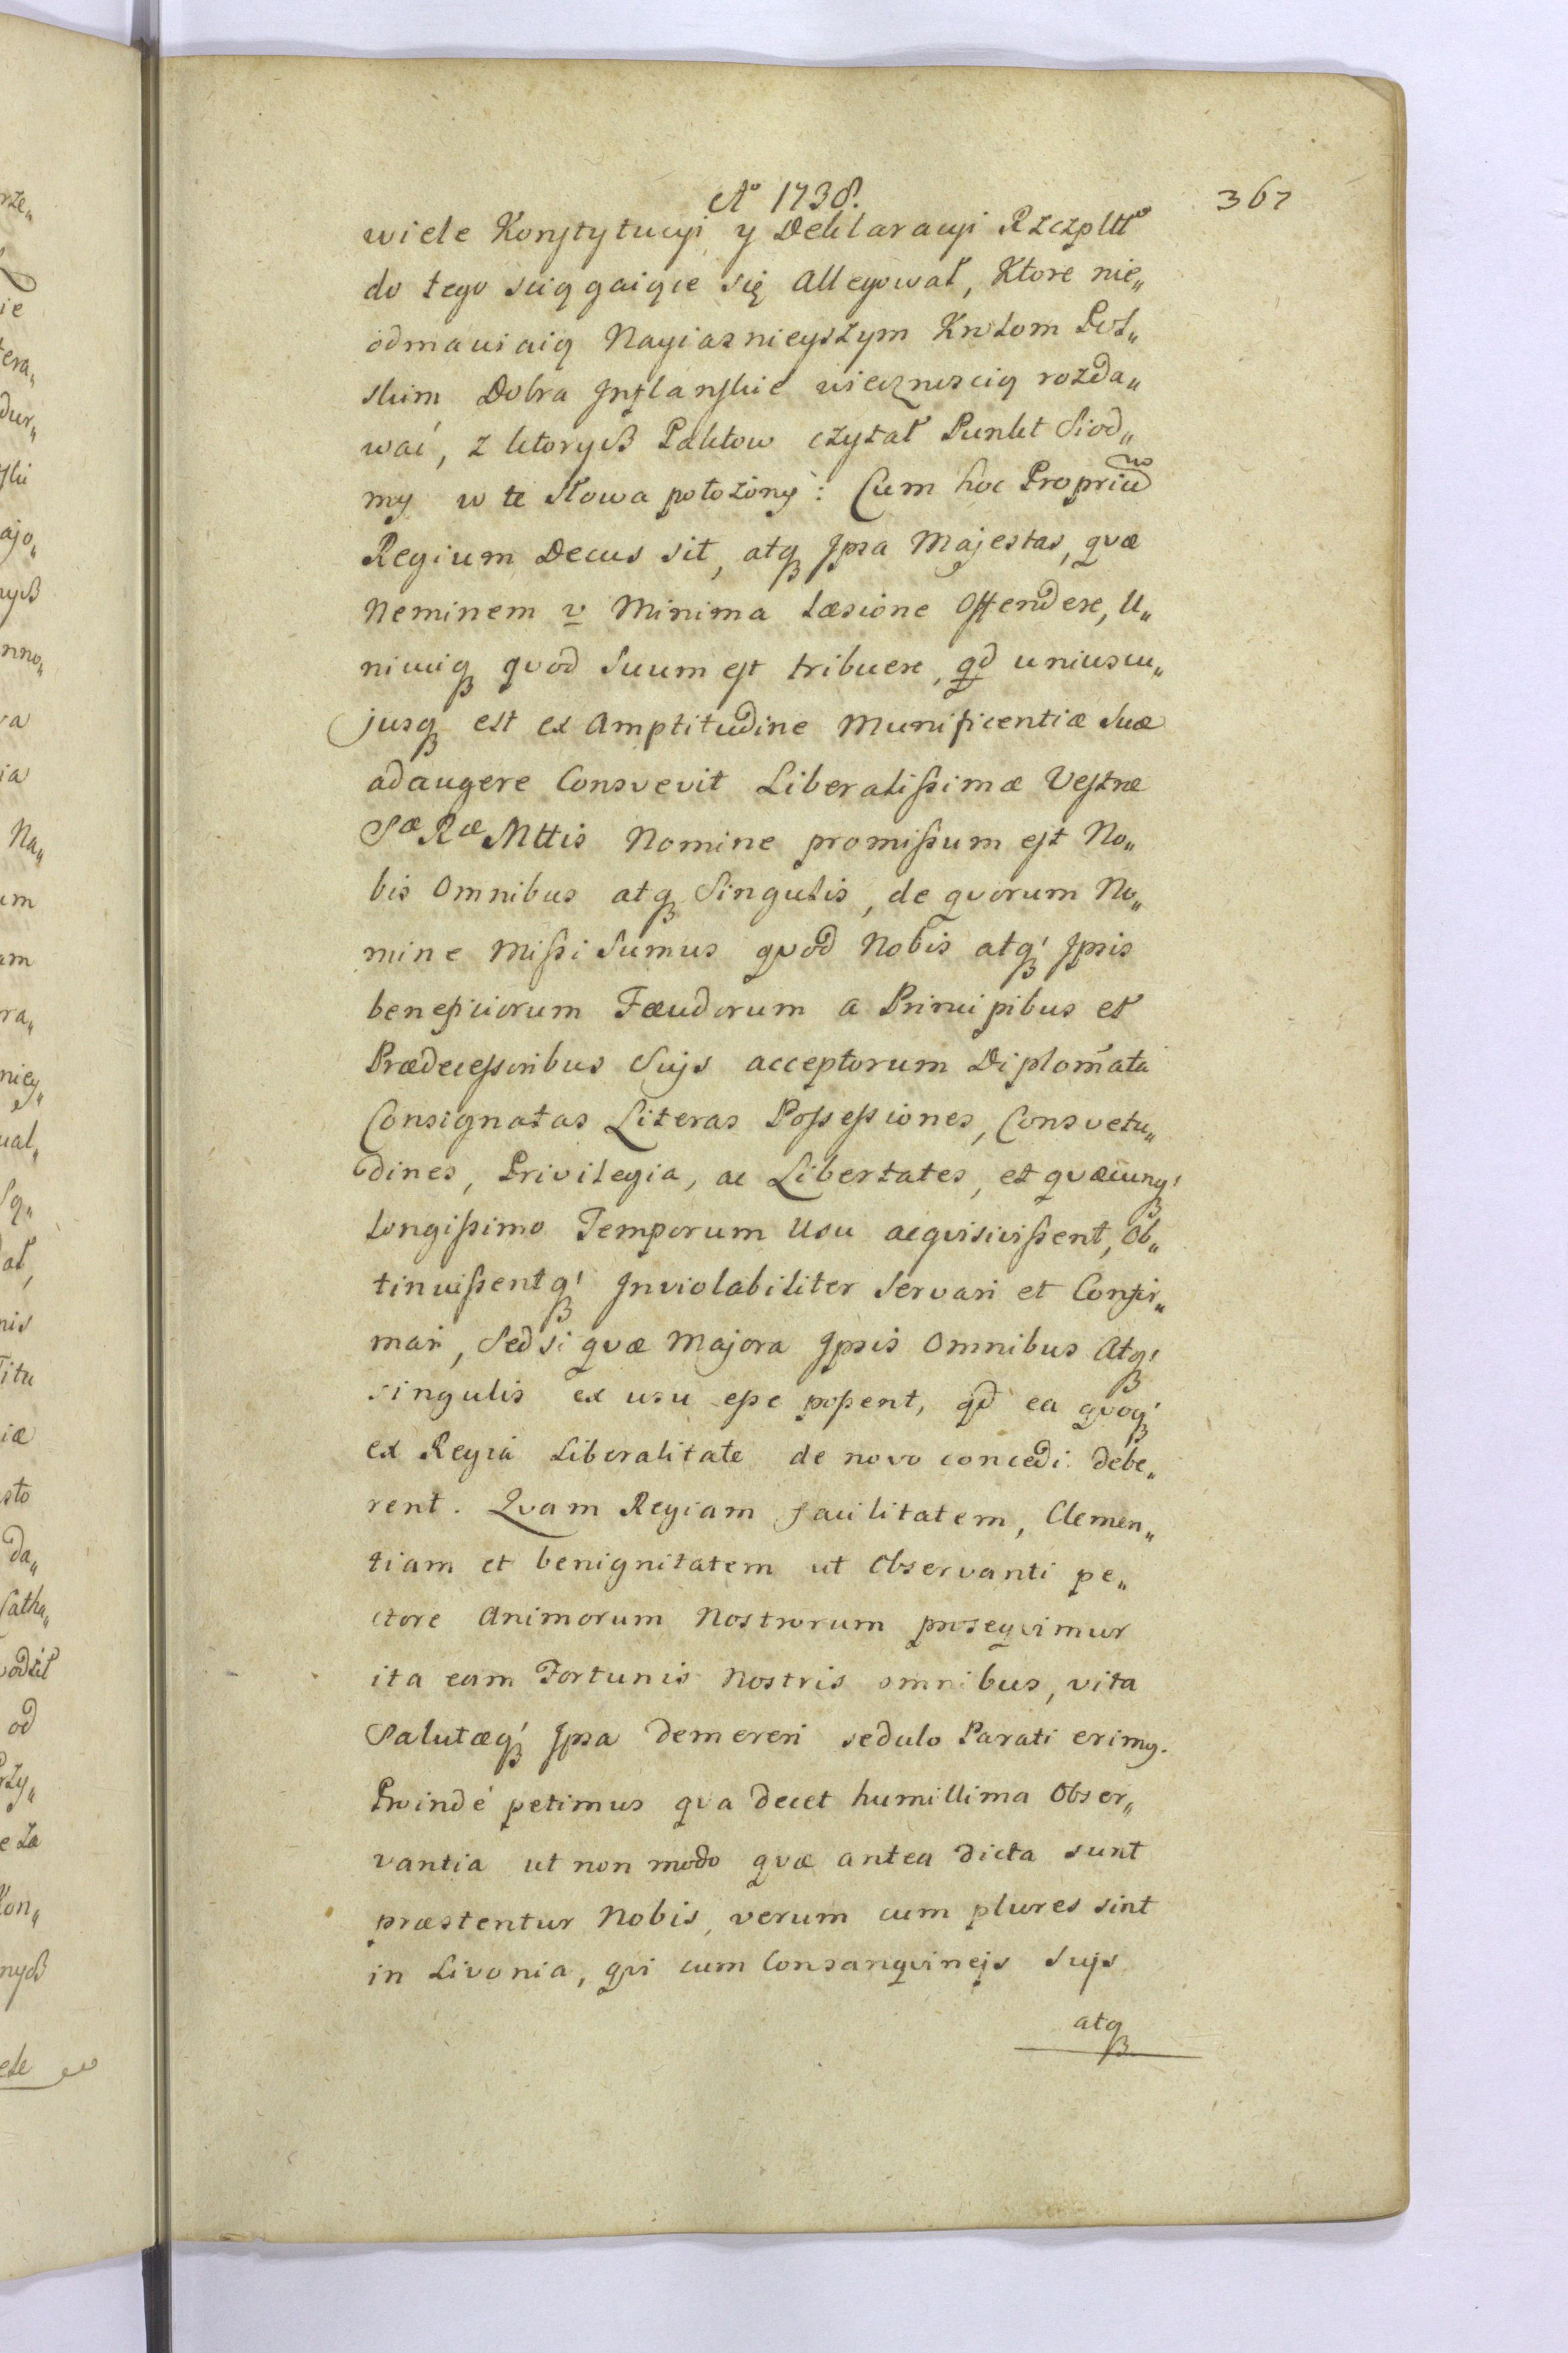 Aº 1738.
367
wiele Konstytucyi y Deklaracyi Rzczpltt
do tego sciągaiące się Allegował, Ktore nie„
odmawiaią Nayiasnieyszym Krolom Pol„
skim Dobra Inflanskie wiecznoscią rozda„
wać, z ktorych Paktow czytał Punkt Siod„
my w te słowa położony: Cum hoc Propriu
Regium Decus sit, atq Ipsa Majestas, qvæ
Neminem v Minima Læsione Offendere, U„
nicuiq qvod Suum est tribuere, qd uniuscu„
jusq est ex Amptitudine Munificentiæ Suæ
adaugere Consvevit Liberalissimæ Vestræ
Sæ Ræ Mttis Nomine promissum est No„
bis Omnibus atq Singulis, de qvorum No„
mine Missi Sumus qvod Nobis atq' Ipsis
beneficiorum Fæudorum a Principibus et
Prædecessoribus Sujs acceptorum Diplomata
Consignatas Literas Possessiones, Consvetu„
dines, Privilegia, ac Libertates, et qvæcunq'
Longissimo Temporum Usu acqvisivissent, Ob„
tinuissentq' Inviolabiliter Servari et Confir„
mari, Sed si qvæ Majora Ipsis Omnibus Atq'
singulis ex usu esse possent, qd ea qvoq'
ex Regiá Liberalitate de novo concedi debe„
rent. Qvam Regiam facilitatem, Clemen„
tiam et benignitatem ut Observanti pe„
ctore Animorum Nostrorum proseqvimur
ita eam Fortunis Nostris omnibus, vita
Salutæq' Ipsa demereri sedulo Parati erimg.
Proindé petimus qva decet humillima Obser„
vantia ut non modo qvæ antea dicta sunt
præstentur Nobis, verum cum plures sint
in Livonia, qvi cum Consangvinejs Sujs
atq